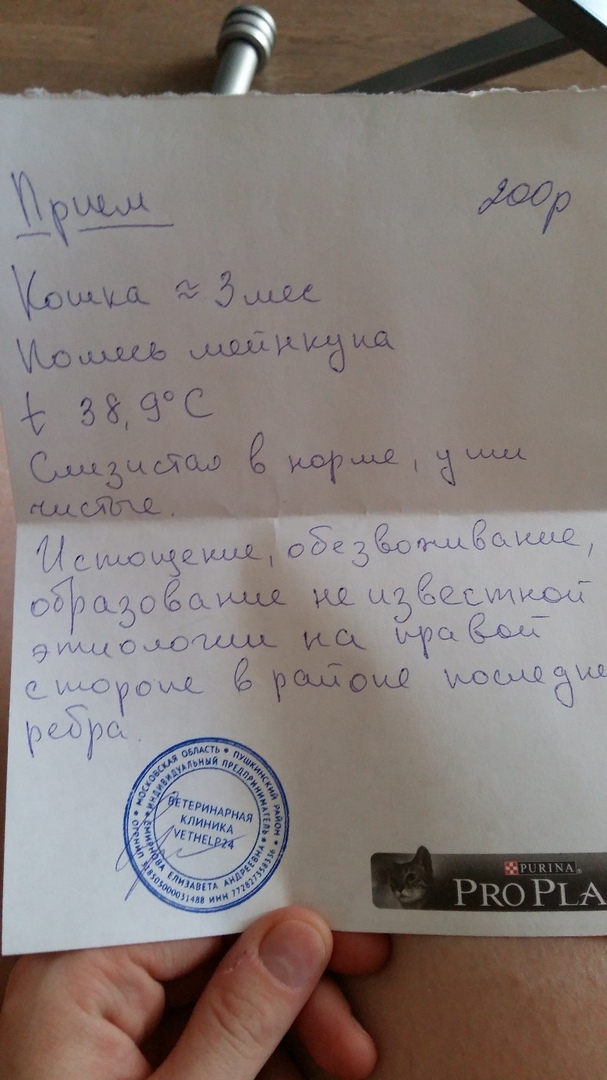 Прием 200р
Кошка ≈ 3 мес
Помесь мейнкуна
t 38,9°C
Слизистая в норме, уши
чистые.
Истощение, обезвоживание,
образование не известной
этиологии на правой
стороне в районе последне
ребра.
МОСКОВСКАЯ ОБЛАСТЬ • ПУШКИНСКИЙ РАЙОН
ИНДИВИДУАЛЬНЫЙ ПРЕДПРИНИМАТЕЛЬ
СМИРНОВА ЕЛИЗАВЕТА АНДРЕЕВНА
ВЕТЕРИНАРНАЯ
КЛИНИКА
VETHELP24
PURINA
PRO PLA